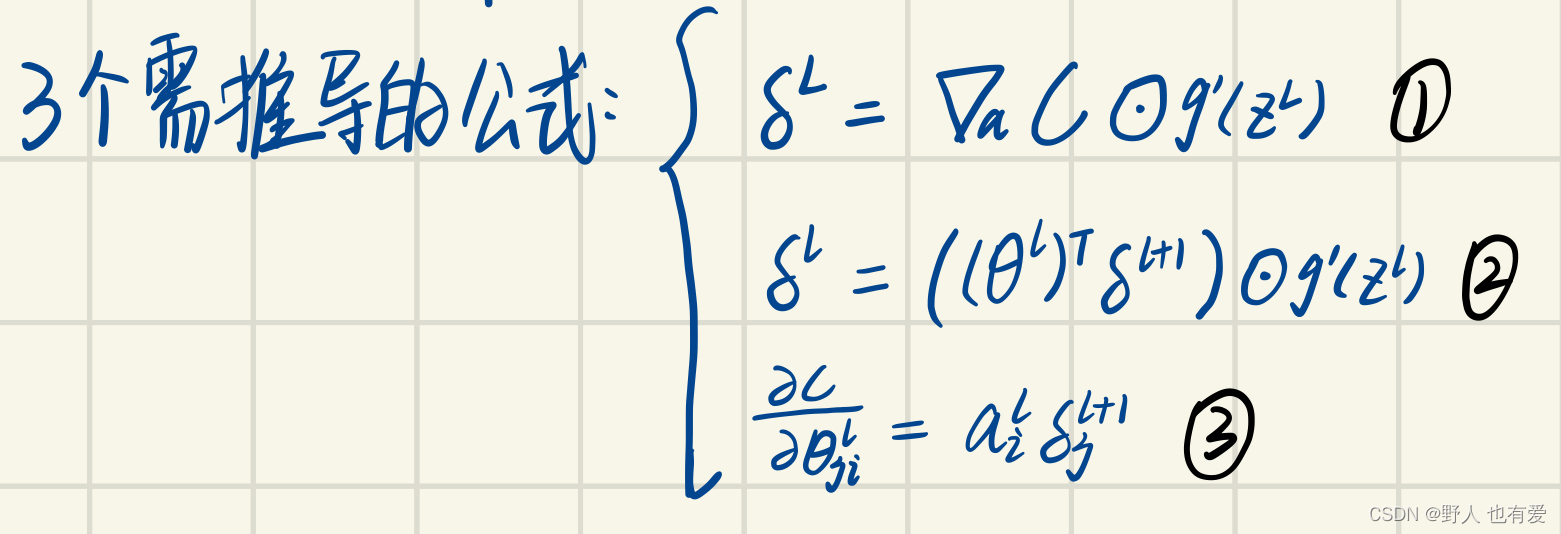 3个需推导的公式: δ^L = ∇a C ⊙ g'(z^L) ①
δ^l = ((θ^l)^T δ^{l+1}) ⊙ g'(z^l) ②
∂C/∂θ_{ji}^l = a_i^l δ_j^{l+1} ③
CSDN @野人 也有爱